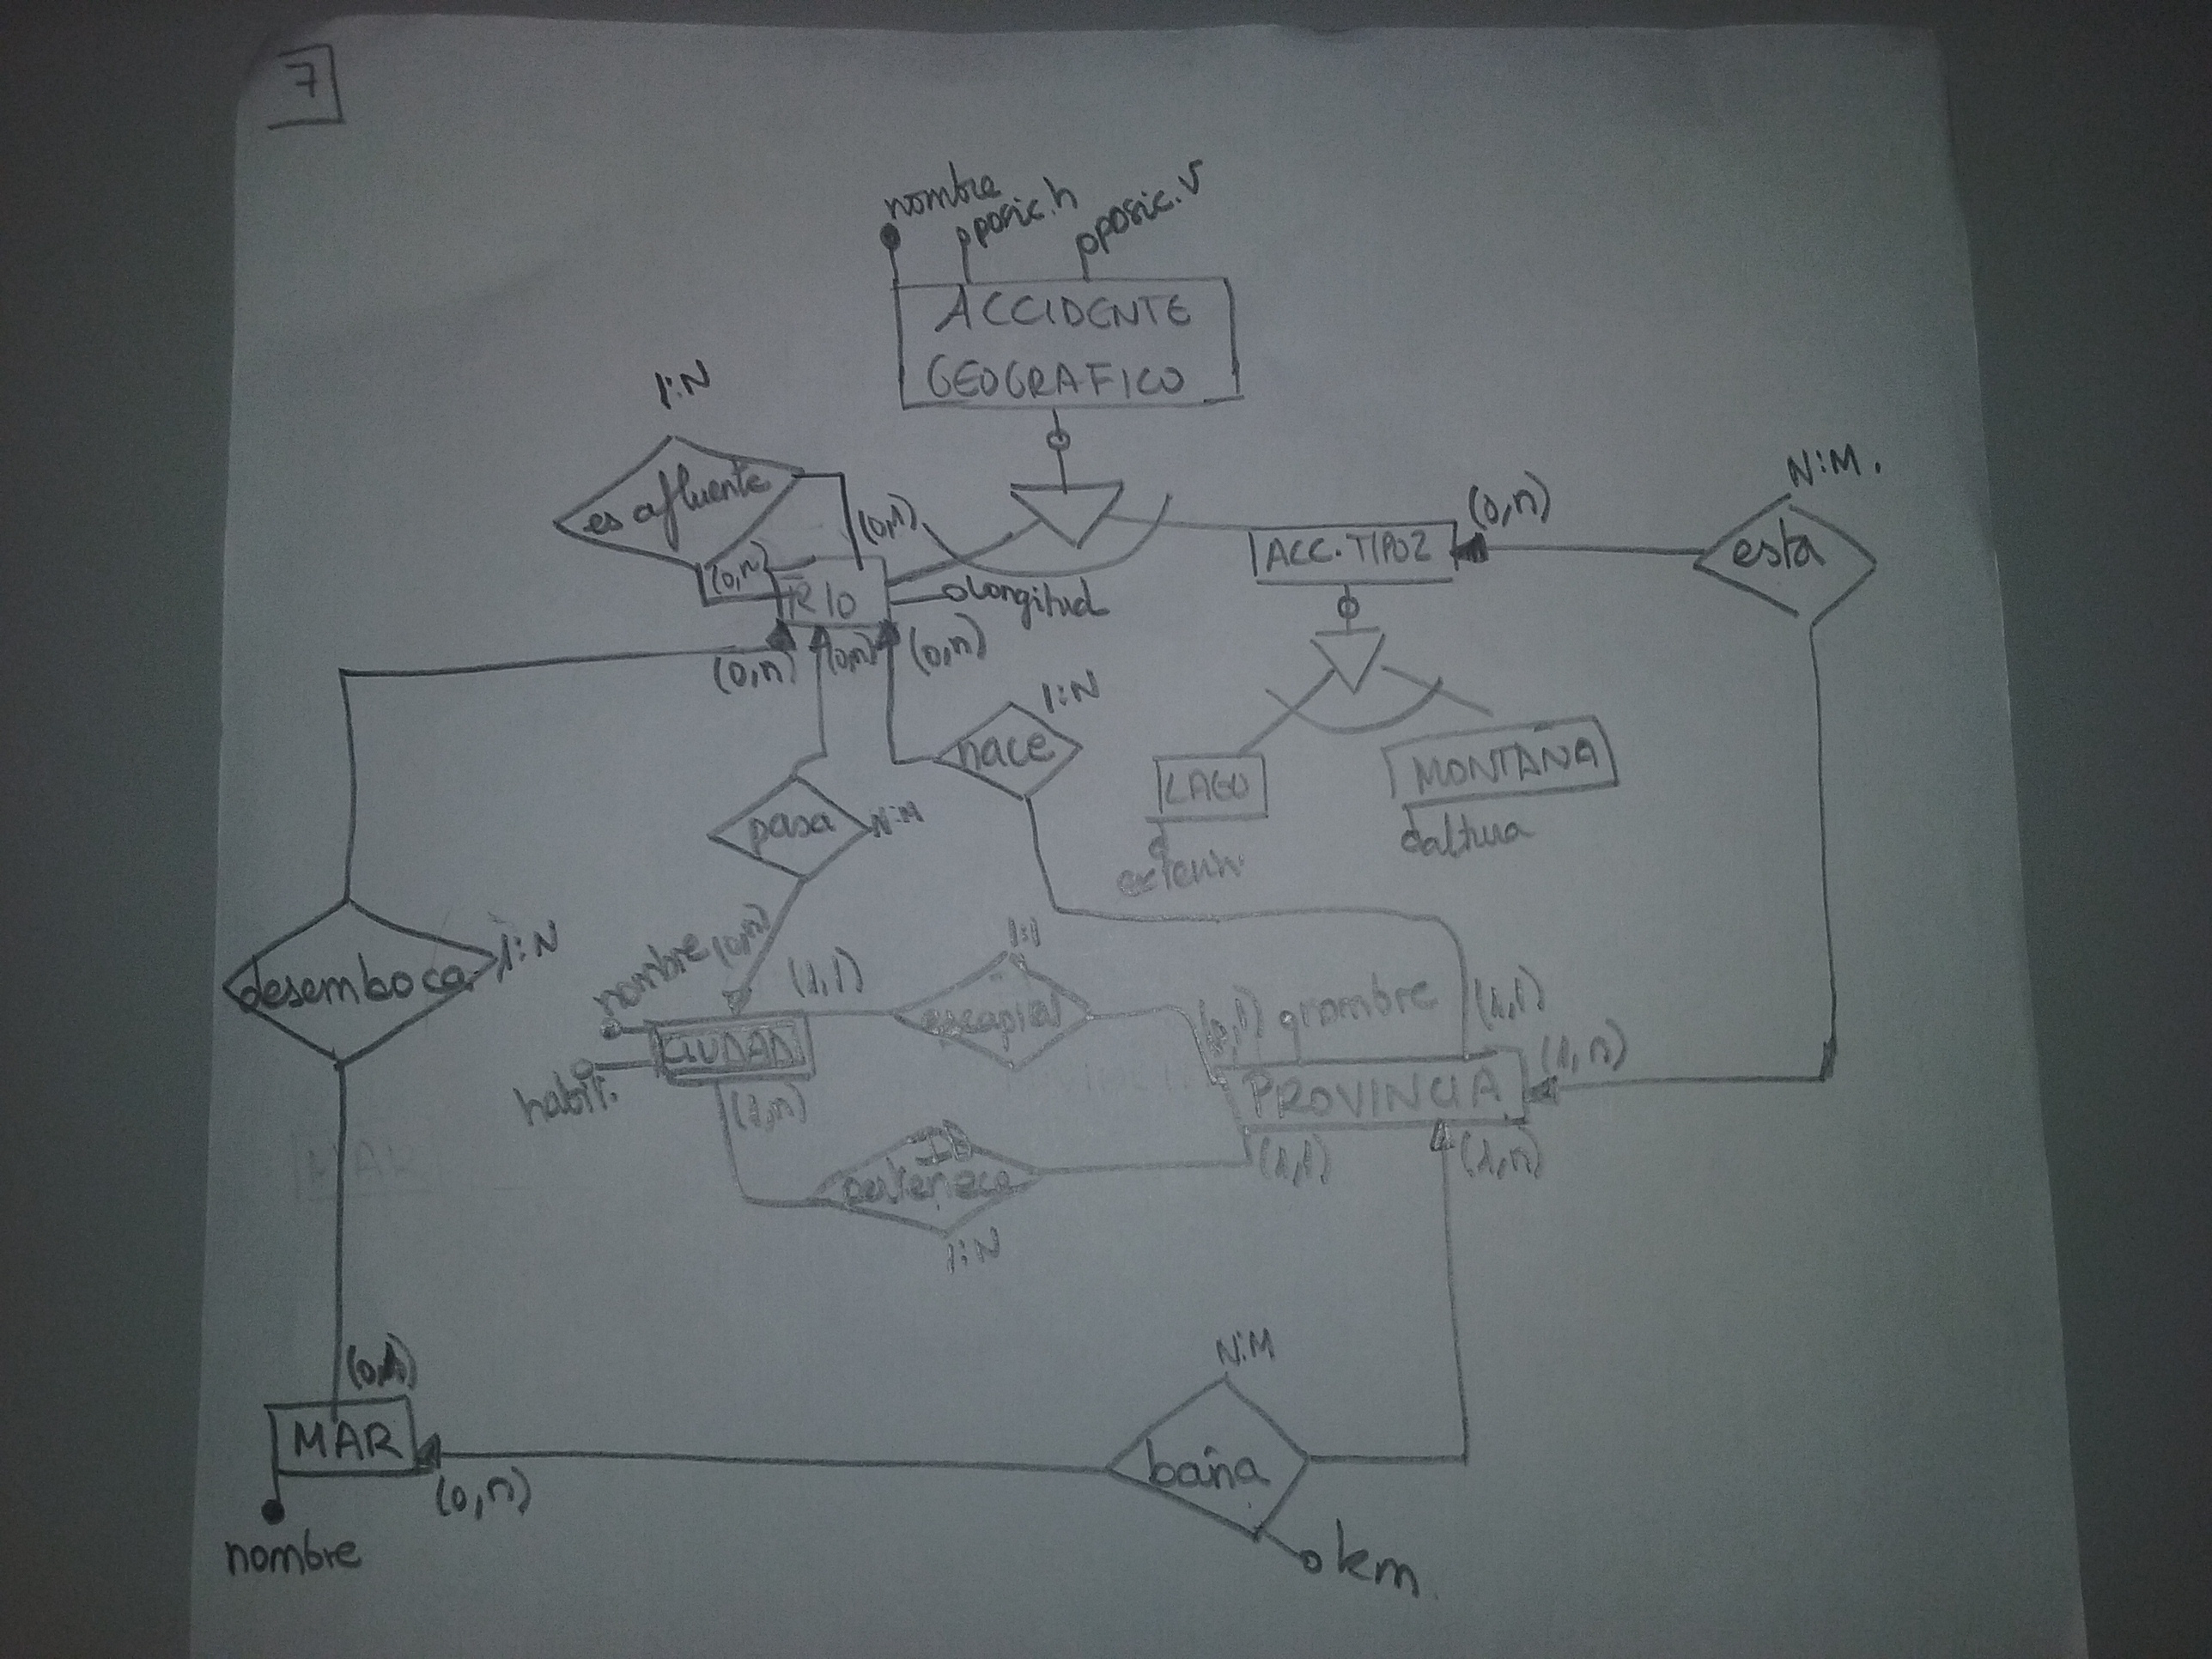 7
nombre
posic.h
posic.v
ACCIDENTE
GEOGRAFICO
1:N
es afluente
(0,1)
(0,n)
RIO
longitud
ACC.TIPO2
(0,n)
N:M.
está
(0,n)
(0,n)
(0,n)
1:N
nace
LAGO
MONTAÑA
altura
pasa
N:M
desemboca
1:N
nombre
(0,n)
(1,1)
1:1
es capital
nombre
(1,1)
(1,n)
CIUDAD
habit.
PROVINCIA
(1,n)
ID
pertenece
(1,1)
(1,n)
1:N
MAR
(0,1)
MAR
(0,n)
nombre
N:M
baña
km.